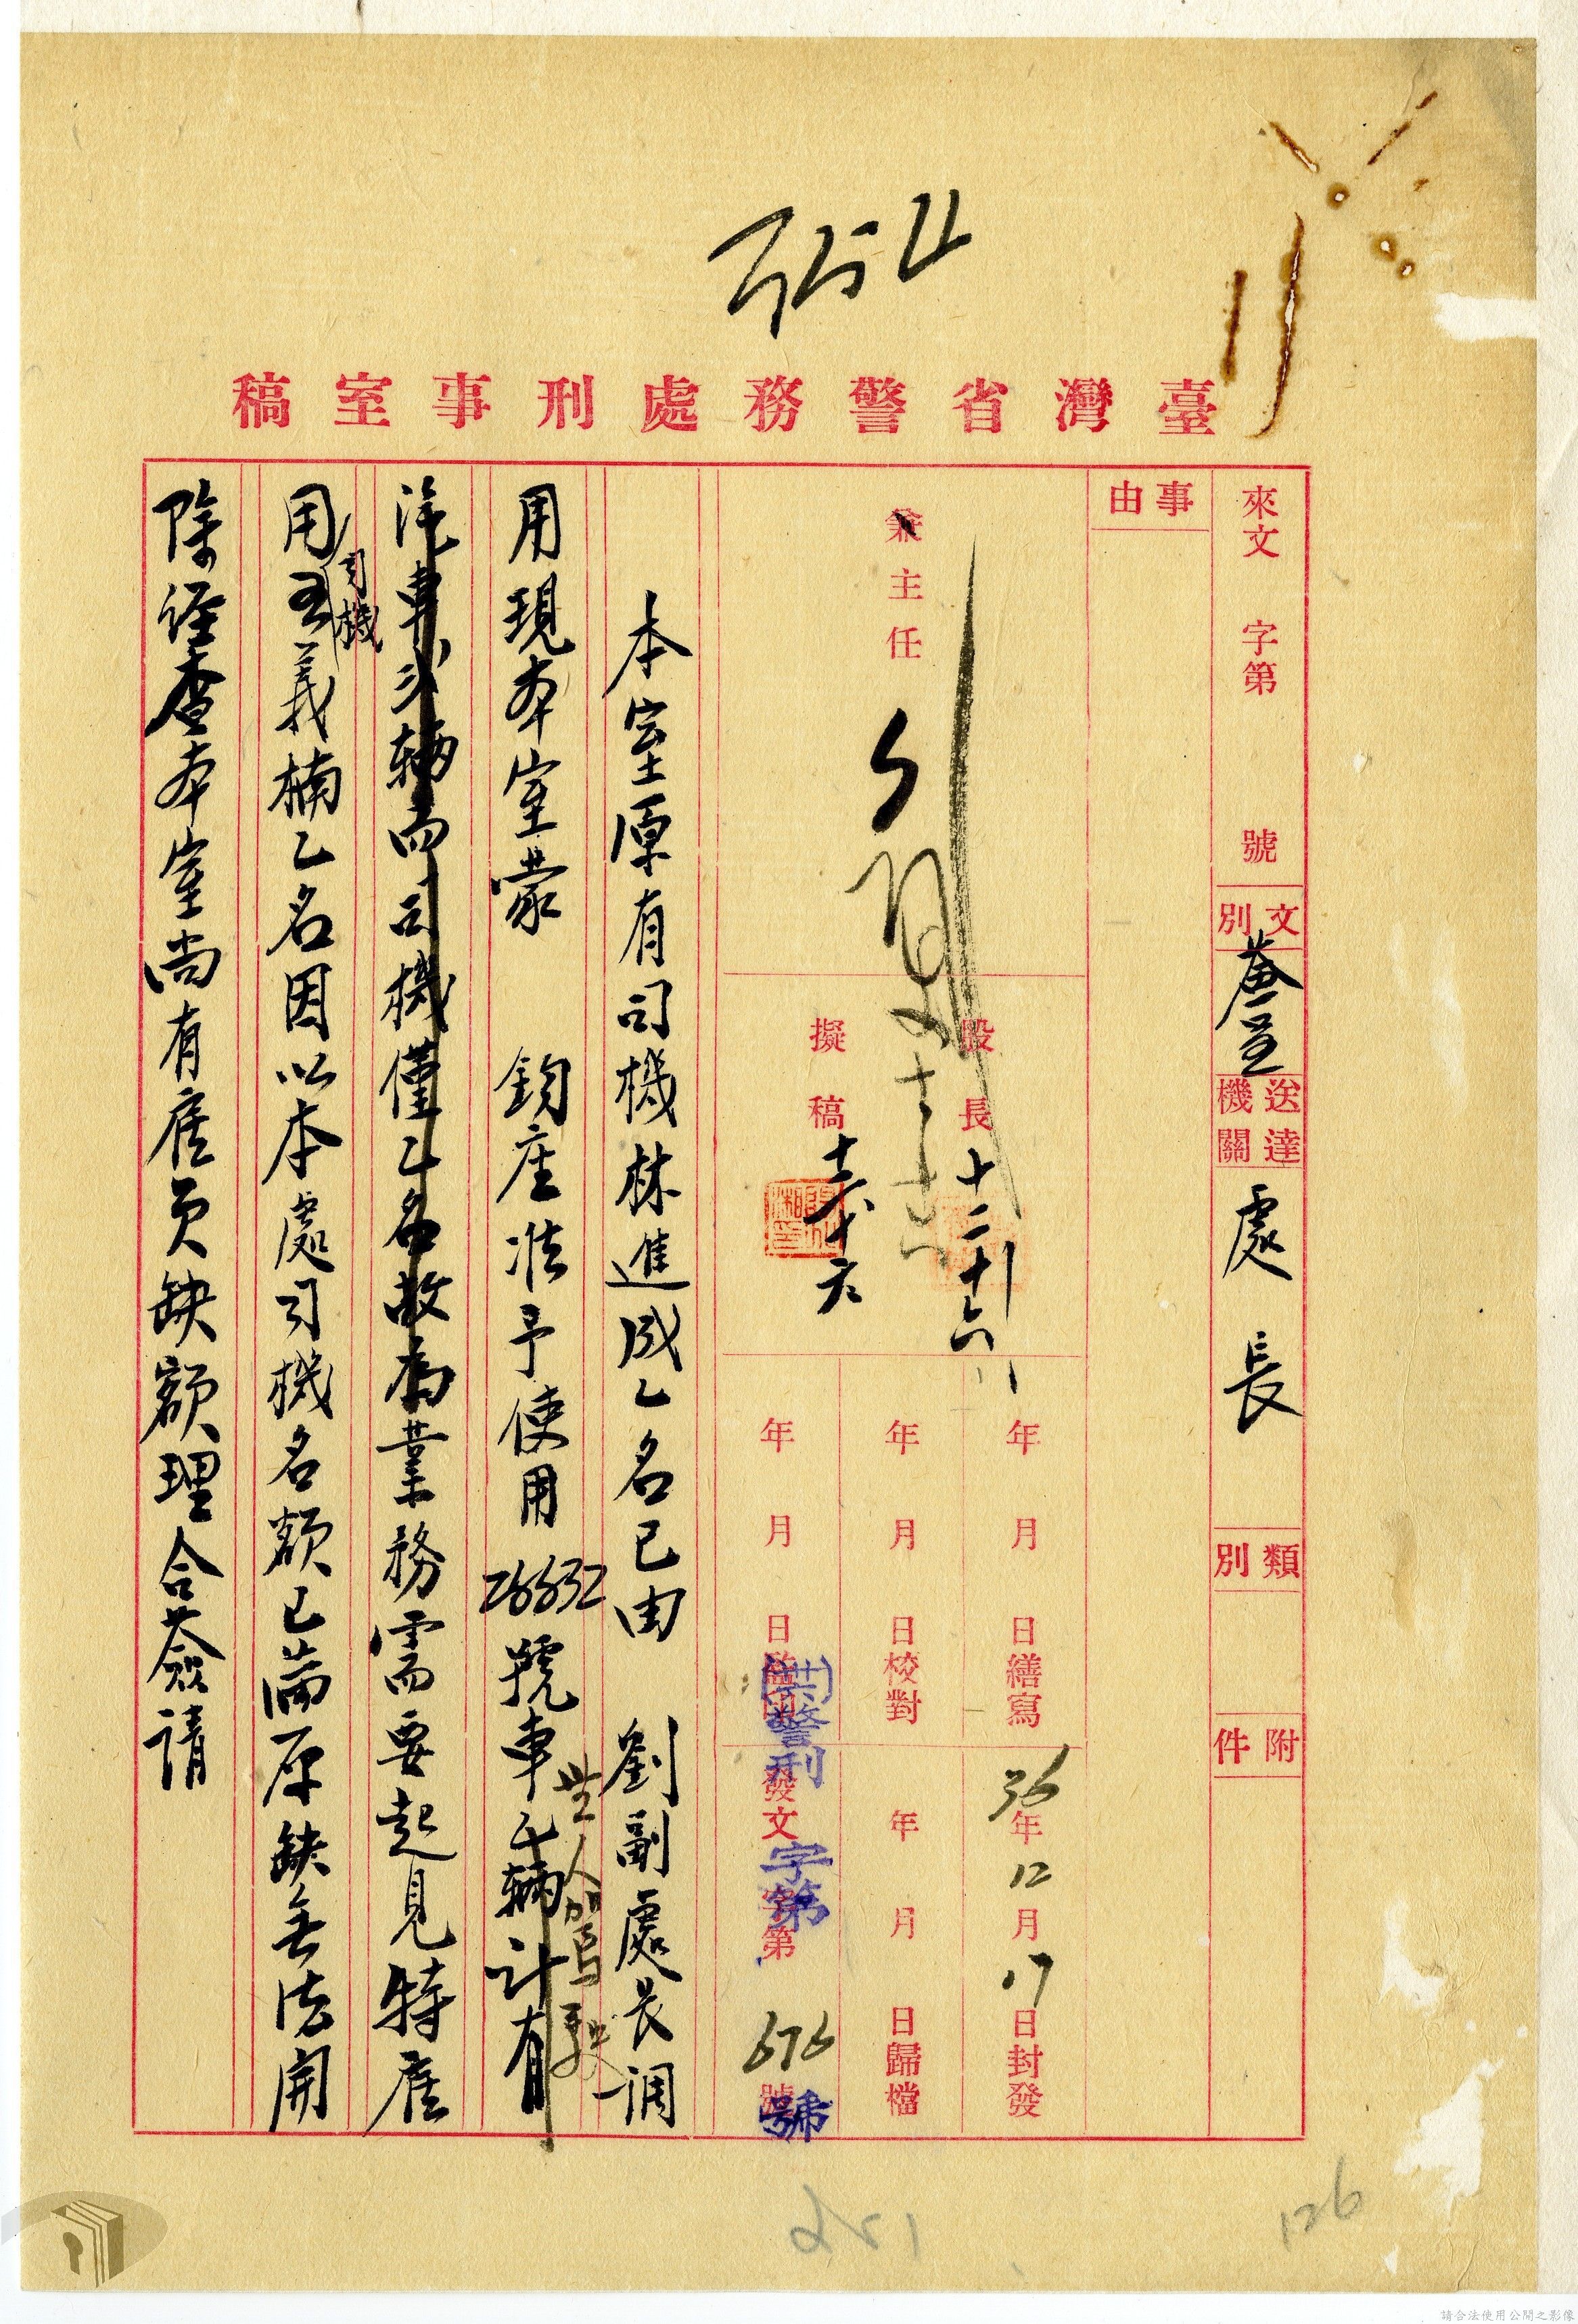 臺灣省警務處刑事室稿
來文 字第 號
文別 簽呈
送達機關 處長
類別
附件
事由
兼主任
股長 十二 十六
擬稿 十二 十六
年 月 日繕寫
年 月 日校對
年 月 日監印
36年12月17日封發
年 月 日歸檔
發文 字第 號
(卅六)警刑 字第 676 號
本室原有司機林進成乙名已由 劉副處長調
用現本室蒙 鈞座准予使用26632號車乙輛計有
無人駕駛
汽車弍輛而司機僅乙名故為業務需要起見特雇
用司機義楠乙名因以本處司機名額已滿原缺無法開
除經查本室尚有雇員缺額理合簽請
126
請合法使用公開之影像